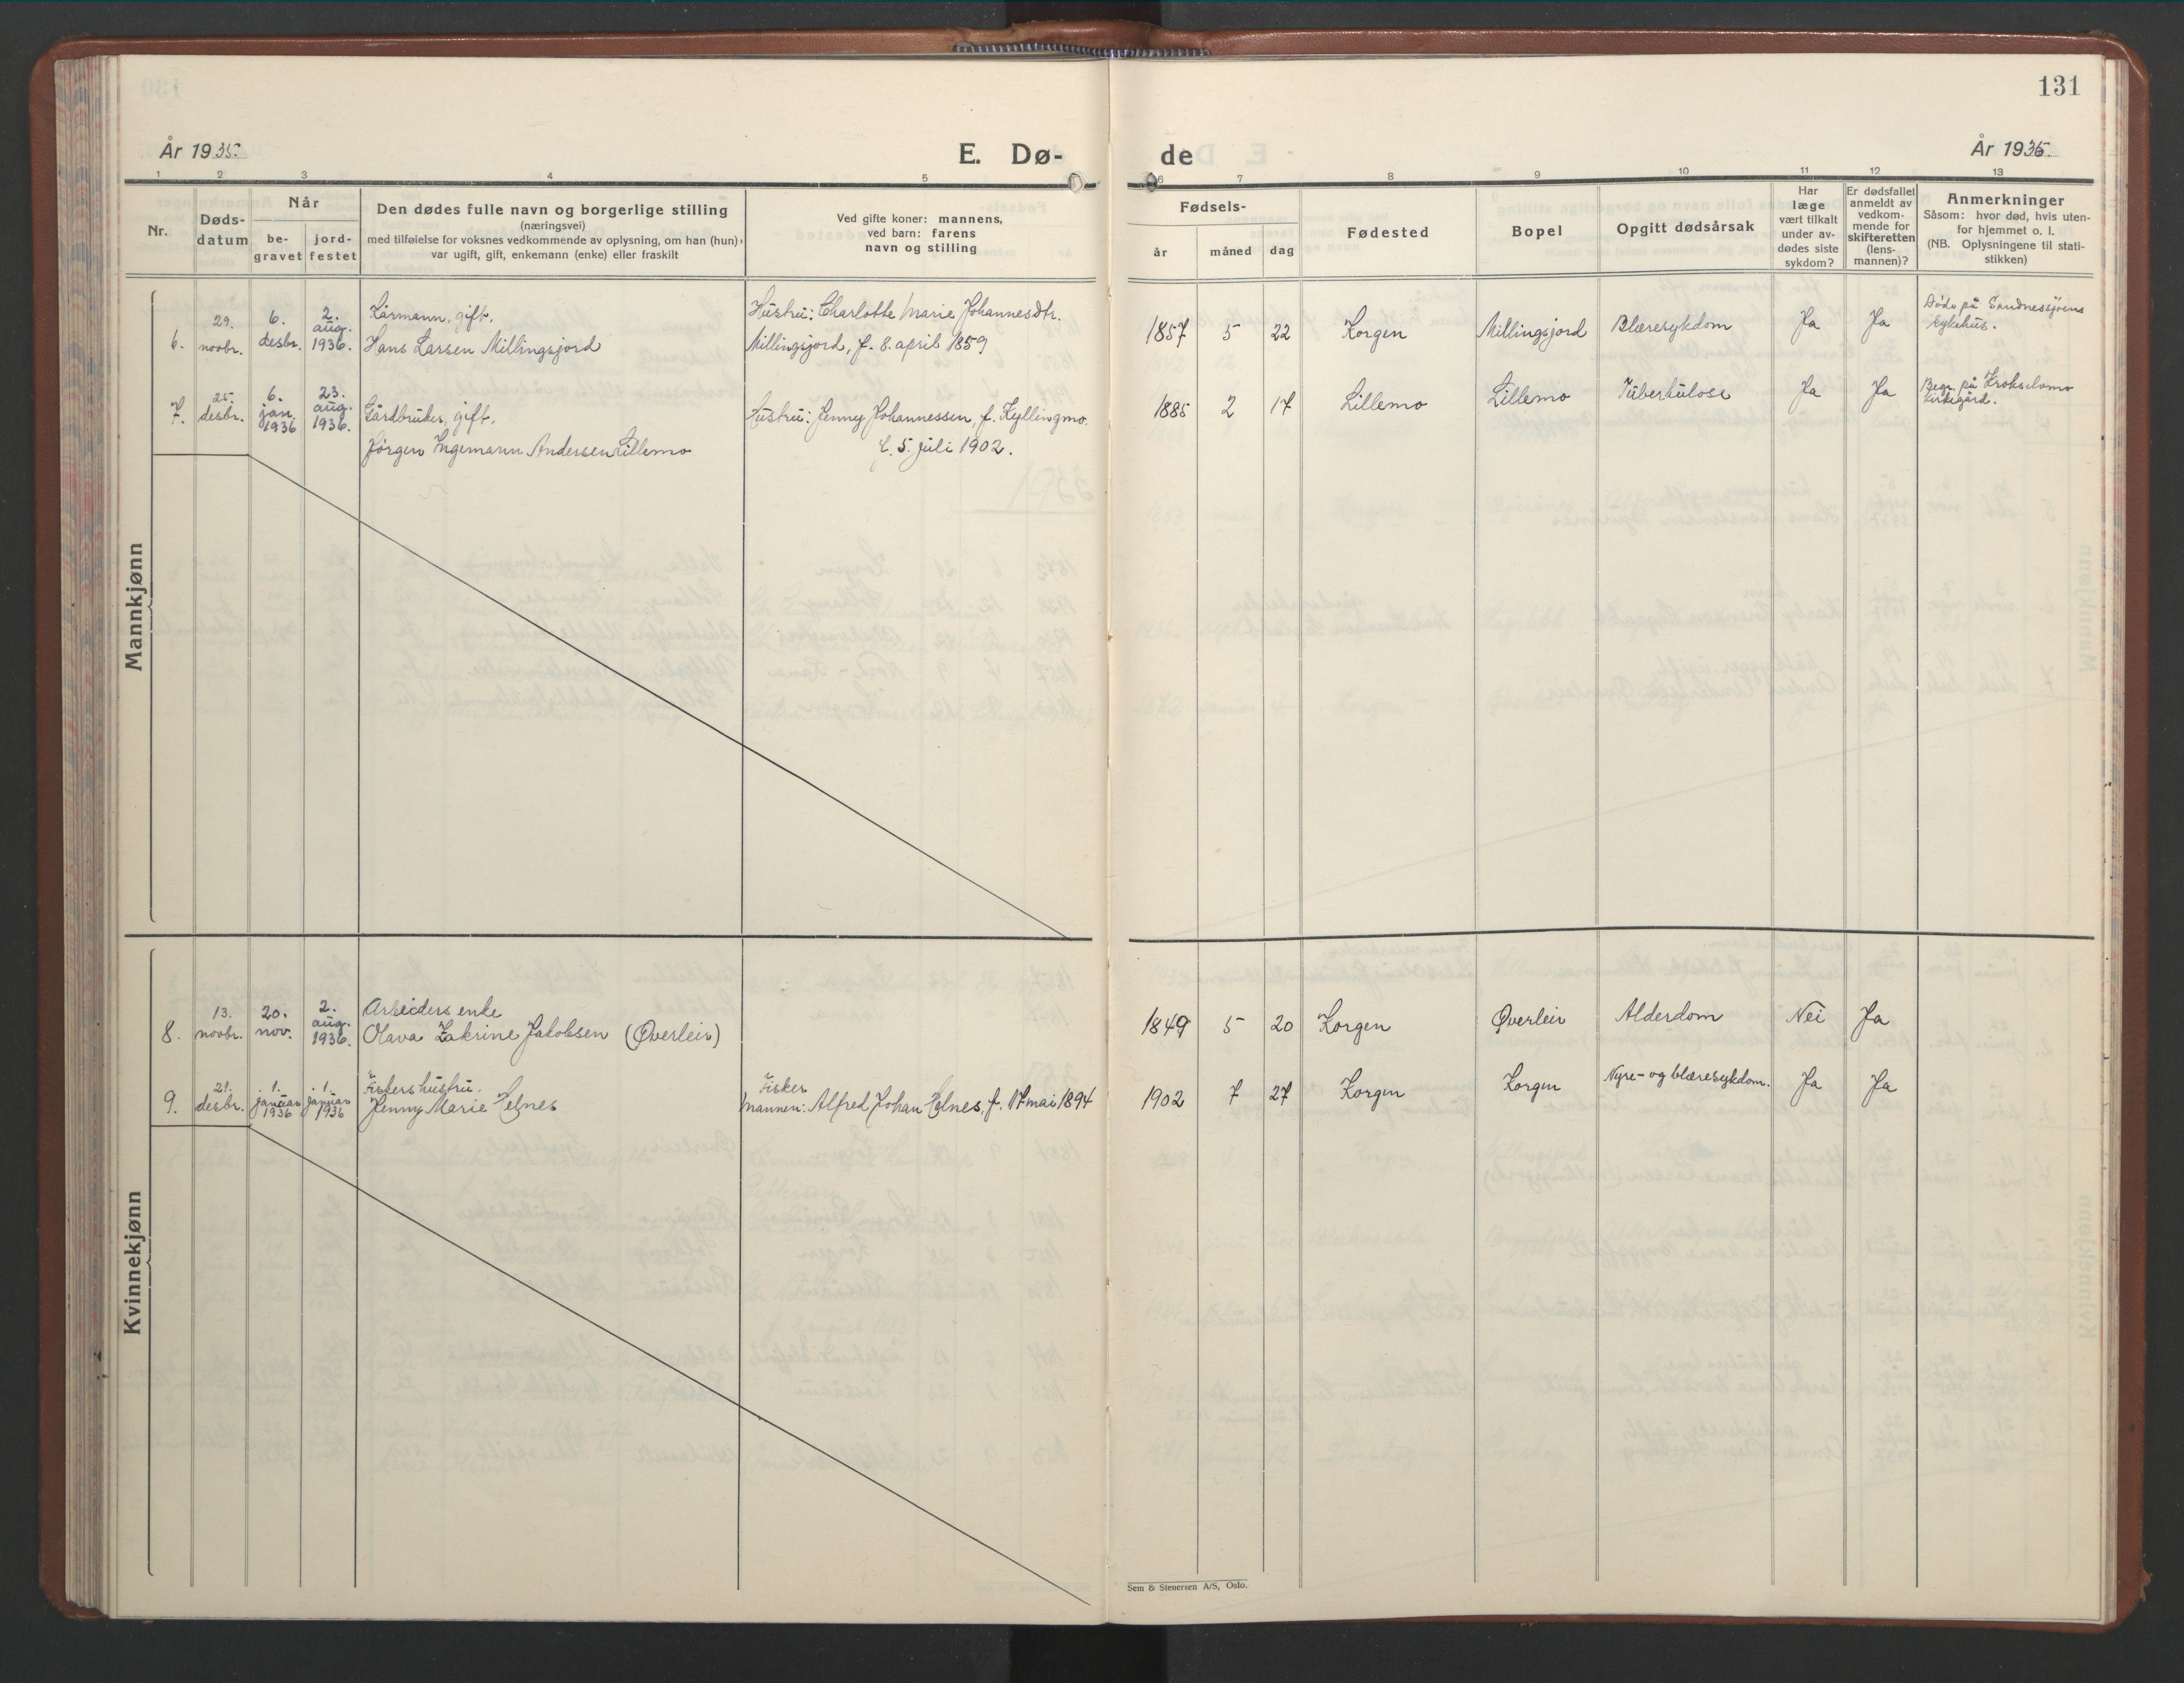 131
År 1935.
E. Dø-
de
År 1935.
1 2 3 4 5 6 7 8 9 10 11 12 13
Nr.
Døds-
datum
Når
be-
gravet
jord-
festet
Den dødes fulle navn og borgerlige stilling
(næringsvei)
med tilføielse for voksnes vedkommende av oplysning, om han (hun)
var ugift, gift, enkemann (enke) eller fraskilt
Ved gifte koner: mannens,
ved barn: farens
navn og stilling
Fødsels-
år
måned
dag
Fødested
Bopel
Opgitt dødsårsak
Har
læge
vært tilkalt
under av-
dødes siste
sykdom?
Er dødsfallet
anmeldt av
vedkom-
mende for
skifteretten
(lens-
mannen)?
Anmerkninger
Såsom: hvor død, hvis uten-
for hjemmet o. l.
(NB. Oplysningene til stati-
stikken)
Mannkjønn
6.
29.
novbr.
6.
desbr.
2.
aug.
1936.
Kårmann, gift.
Hans Larsen Millingsjord
Hustru: Charlotte Marie Johannesdtr.
Millingsjord, f. 8. april 1859
1857 5 22 Korgen Millingsjord Blæresykdom Ja Ja
Døde på Sandnessjøens
sykehus.
7.
25.
desbr.
6.
jan.
1936
23.
aug.
1936.
Gårdbruker, gift.
Jørgen Ingemann Andersen Lillemo
Hustru: Jenny Johannessen, f. Kyllingmo.
f. 5. juli 1902.
1885 2 17 Lillemo Lillemo Tuberkulose Ja Ja
Begr. på Krokselvmo
kirkegård.
Kvinnekjønn
8.
13.
novbr.
20.
nov.
2.
aug.
1936.
Arbeiders enke
Olava Zakrine Jakobsen (Øverleir)
1849 5 20 Korgen Øverleir Alderdom Nei Ja
9.
21.
desbr.
1.
januar
1936
1.
januar
1936
Fiskers hustru.
Jenny Marie Helnes
Fisker
Mannen: Alfred Johan Helnes, f. 17 mai 1894
1902 7 27 Korgen Korgen Nyre- og blæresykdom. Ja Ja
Sem & Stenersen A/S, Oslo.